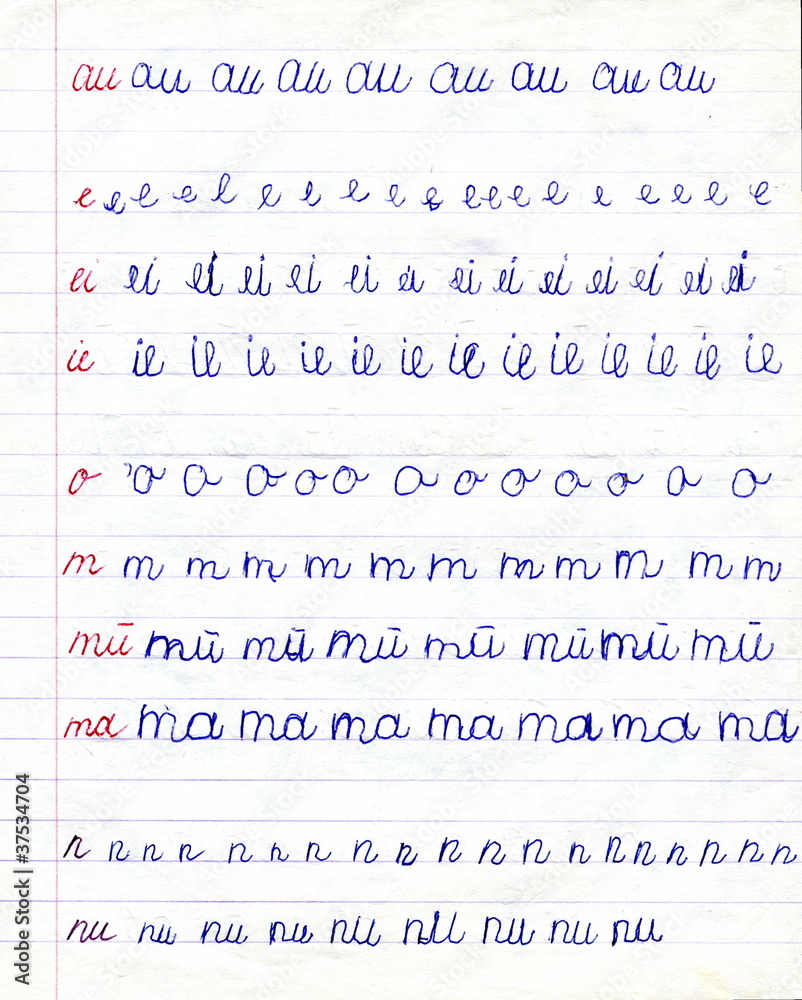 au au au au au au au au au
e e e e e e e e e e e e e e e e e e e
ei ei ei ei ei ei ei ei ei ei ei ei ei ei
ie ie ie ie ie ie ie ie ie ie ie ie ie ie
o o o o o o o o o o o o o
m m m m m m m m m m m m
mū mū mū mū mū mū mū mū
ma ma ma ma ma ma ma ma
n n n n n n n n n n n n n n n n n n n
nu nu nu nu nu nu nu nu nu
Adobe Stock | #37534704